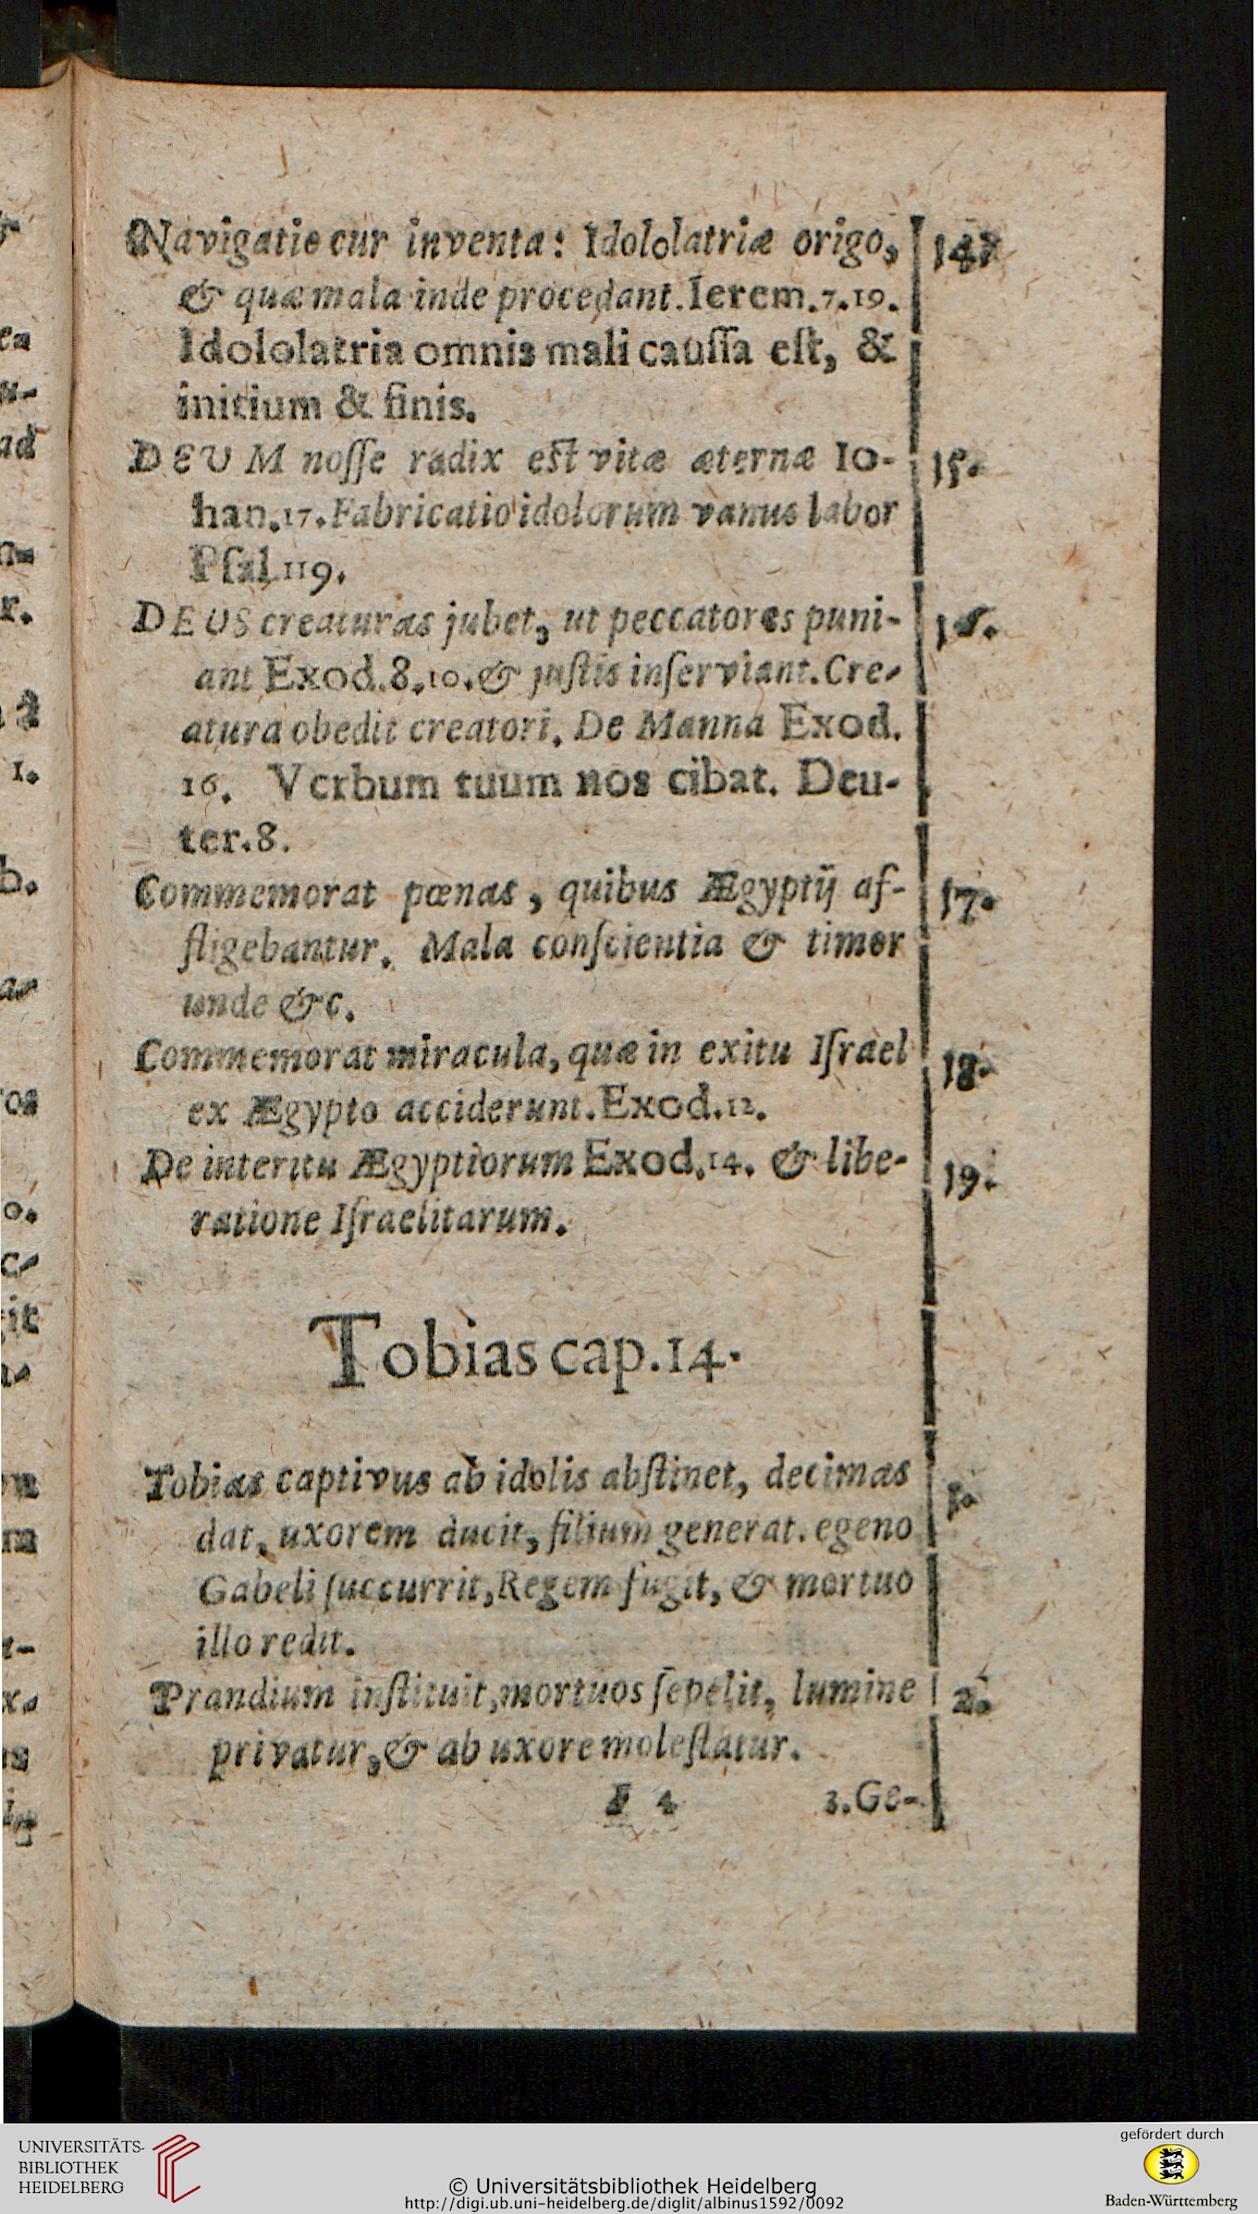 Navigatio cur inventa: Idololatriæ origo, 14.
& quæ mala inde procedant. Ierem. 7. 19.
Idololatria omnis mali cauſſa eſt, &
initium & finis.
DEUM noſſe radix eſt vitæ æternæ Io- 15.
han. 17. Fabricatio idolorum vanus labor
Pſal 119.
DEUS creaturas jubet, ut peccatores puni- 16.
ant Exod. 8, 10. & juſtis inſerviant. Cre-
atura obedit creatori. De Manna Exod.
16. Verbum tuum nos cibat. Deu-
ter. 8.
Commemorat pœnas, quibus Ægyptij af- 17.
fligebantur. Mala conſcientia & timor
unde &c.
Commemorat miracula, quæ in exitu Iſrael 18.
ex Ægypto acciderunt. Exod. 12.
De interitu Ægyptiorum Exod. 14. & libe- 19.
ratione Iſraelitarum.
Tobias cap. 14.
Tobias captivus ab idolis abſtinet, decimas 1.
dat, uxorem ducit, filium generat. egeno
Gabeli ſuccurrit, Regem fugit, & mortuo
illo redit.
Prandium inſtituit, mortuos ſepelit, lumine 2.
privatur, & ab uxore moleſtatur.
F 4 3. Ge-
UNIVERSITÄTS-
BIBLIOTHEK
HEIDELBERG
© Universitätsbibliothek Heidelberg
http://digi.ub.uni-heidelberg.de/diglit/albinus1592/0092
gefördert durch
Baden-Württemberg